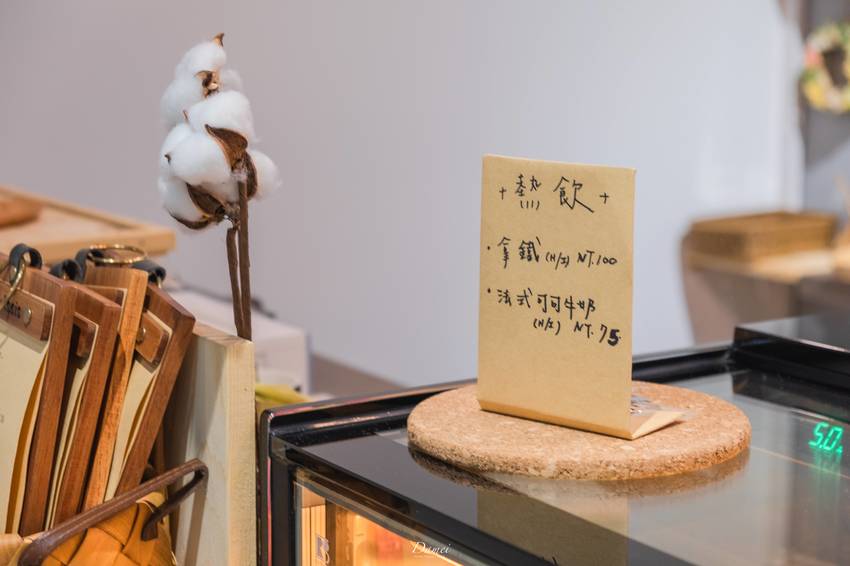 + 熱飲 +
· 拿鐵 (H/I) NT.100
· 法式可可牛奶
(H/I) NT.75
5.0
Damei